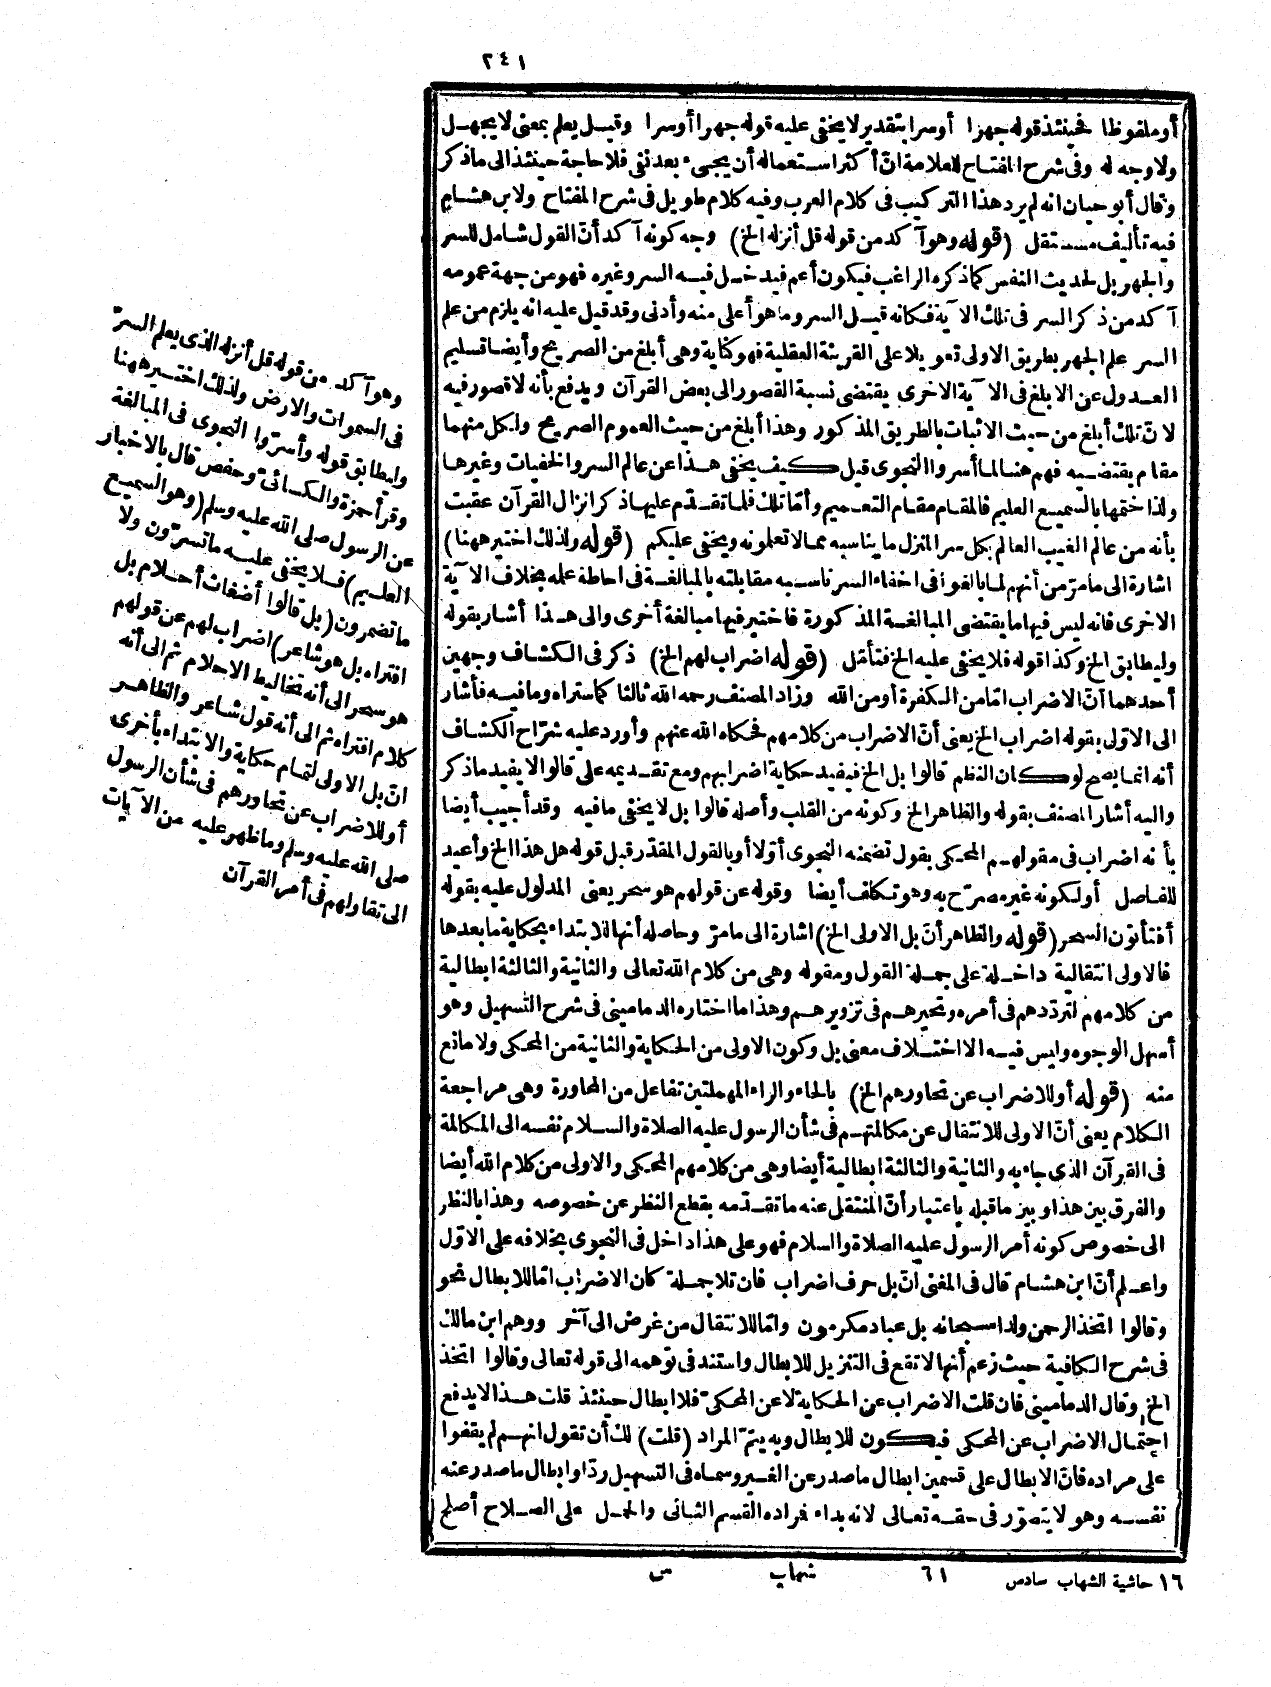 ٢٤١
أوملفوظا فحينئذ قوله جهرا أوسرا بتقدير لا يخفى عليه قوله جهرا أوسرا وقيل يعلم بمعنى لا يجهل
ولا وجه له وفى شرح المفتاح للعلامة انّ أكثر استعماله أن يجىء بعد نفى فلا حاجة حينئذ الى ماذكر
وقال أبوحيان انه لم يرد هذا التركيب فى كلام العرب وفيه كلام طويل فى شرح المفتاح ولابن هشام
فيه تأليف مستقل (قوله وهو آكد من قوله قل أنزله الخ) وجه كونه آكد أنّ القول شامل للسر
والجهر بل لحديث النفس كما ذكره الراغب فيكون أعم فيدخل فيه السر وغيره فهو من جهة عمومه
آكد من ذكر السر فى تلك الآية فكانه قيل السر وما هو أعلى منه وأدنى وقد قيل عليه انه يلزم من علم
السر علم الجهر بطريق الاولى تعويلا على القرينة العقلية فهو كناية وهى أبلغ من الصريح وأيضا تسليم
العدول عن الابلغ فى الآية الاخرى يقتضى نسبة القصور الى بعض القرآن ويدفع بأنه لا قصور فيه
لانّ تلك أبلغ من حيث الاثبات بالطريق المذكور وهذا أبلغ من حيث العموم الصريح ولكل منهما
مقام يقتضيه فهم هنا لما أسروا النجوى قيل كيف يخفى هذا عن عالم السر والخفيات وغيرها
ولذا ختمها بالسميع العليم فالمقام مقام التعميم وأمّا تلك فلما تقدّم عليها ذكر انزال القرآن عقبت
بأنه من عالم الغيب العالم بكل سر المنزل ما يناسبه مما لا تعلمونه ويخفى عليكم (قوله ولذلك اختير ههنا)
اشارة الى مامرّ من أنهم لما بالغوا فى اخفاء السر ناسبه مقابلته بالمبالغة فى احاطة علمه بخلاف الآية
الاخرى فانه ليس فيها ما يقتضى المبالغة المذكورة فاختير فيها مبالغة أخرى والى هذا أشار بقوله
وليطابق الخ وكذا قوله فلا يخفى عليه الخ فتأمّل (قوله اضراب لهم الخ) ذكر فى الكشاف وجهين
أحدهما أنّ الاضراب امّا من الكفرة أومن الله وزاد المصنف رحمه الله ثالثا كما ستراه وما فيه فأشار
الى الاوّل بقوله اضراب الخ يعنى أنّ الاضراب من كلامهم فحكاه الله عنهم وأورد عليه شرّاح الكشاف
أنه انما يصح لو كان النظم قالوا بل الخ فيفيد حكاية اضرابهم ومع تقديمه على قالوا لا يفيد ماذكر
واليه أشار المصنف بقوله والظاهر الخ وكونه من القلب وأصله قالوا بل لا يخفى مافيه وقد أجيب أيضا
بأنه اضراب فى مقولهم المحكى بقول تضمنه النجوى أوّلا أو بالقول المقدّر قبل قوله هل هذا الخ وأعيد
للفاصل أولكونه غير مصرّح به وهو تكلف أيضا وقوله عن قولهم هو سحر يعنى المدلول عليه بقوله
أفتأتون السحر (قوله والظاهر أنّ بل الاولى الخ) اشارة الى مامرّ وحاصله أنها للابتداء بحكاية ما بعدها
فالاولى انتقالية داخلة على جملة القول ومقوله وهى من كلام الله تعالى والثانية والثالثة ابطالية
من كلامهم لتردّدهم فى أمره وتحيرهم فى تزويرهم وهذا ما اختاره الدمامينى فى شرح التسهيل وهو
أسهل الوجوه وليس فيه الا اختلاف معنى بل وكون الاولى من الحكاية والثانية من المحكى ولا مانع
منه (قوله أو للاضراب عن تحاورهم الخ) بالحاء والراء المهملتين تفاعل من المحاورة وهى مراجعة
الكلام يعنى أنّ الاولى للانتقال عن مكالمتهم فى شأن الرسول عليه الصلاة والسلام نفسه الى المكالمة
فى القرآن الذى جاء به والثانية والثالثة ابطالية أيضا وهى من كلامهم المحكى والاولى من كلام الله أيضا
والفرق بين هذا وبين ما قبله باعتبار أنّ المنتقل عنه ما تقدّمه بقطع النظر عن خصوصه وهذا بالنظر
الى خصوص كونه أمر الرسول عليه الصلاة والسلام فهو على هذا داخل فى النجوى بخلافه على الاوّل
واعلم أنّ ابن هشام قال فى المغنى انّ بل حرف اضراب فان تلا جملة كان الاضراب امّا للابطال نحو
وقالوا اتخذ الرحمن ولدا سبحانه بل عباد مكرمون وامّا للانتقال من غرض الى آخر ووهم ابن مالك
فى شرح الكافية حيث زعم أنها لا تقع فى التنزيل للابطال واستند فى توهمه الى قوله تعالى وقالوا اتخذ
الخ وقال الدمامينى فان قلت الاضراب عن الحكاية لا عن المحكىّ فلا ابطال حينئذ قلت هذا لا يدفع
احتمال الاضراب عن المحكى فيكون للابطال وبه يتمّ المراد (قلت) لك أن تقول انهم لم يقفوا
على مراده فانّ الابطال على قسمين ابطال ما صدر عن الغير وسماه فى التسهيل ردّا وابطال ما صدر عنه
نفسه وهو لا يتصوّر فى حقه تعالى لانه بداء فراده القسم الثانى والحمل على الصلاح أصلح
١٦ حاشية الشهاب سادس ٦١ شهاب س
وهو آكد من قوله قل أنزله الذى يعلم السرّ
فى السموات والارض ولذلك اختير ههنا
وليطابق قوله وأسرّوا النجوى فى المبالغة
وقرأ حمزة والكسائىّ وحفص قال بالاخبار
عن الرسول صلى الله عليه وسلم (وهو السميع
العليم) فلا يخفى عليه ما تسرّون ولا
ما تضمرون (بل قالوا أضغاث أحلام بل
افتراه بل هو شاعر) اضراب لهم عن قولهم
هو سحر الى أنه تخاليط الاحلام ثم الى أنه
كلام افتراه ثم الى أنه قول شاعر والظاهر
انّ بل الاولى لتمام حكاية والابتداء بأخرى
أو للاضراب عن تحاورهم فى شأن الرسول
صلى الله عليه وسلم وما ظهر عليه من الآيات
الى تقاولهم فى أمر القرآن